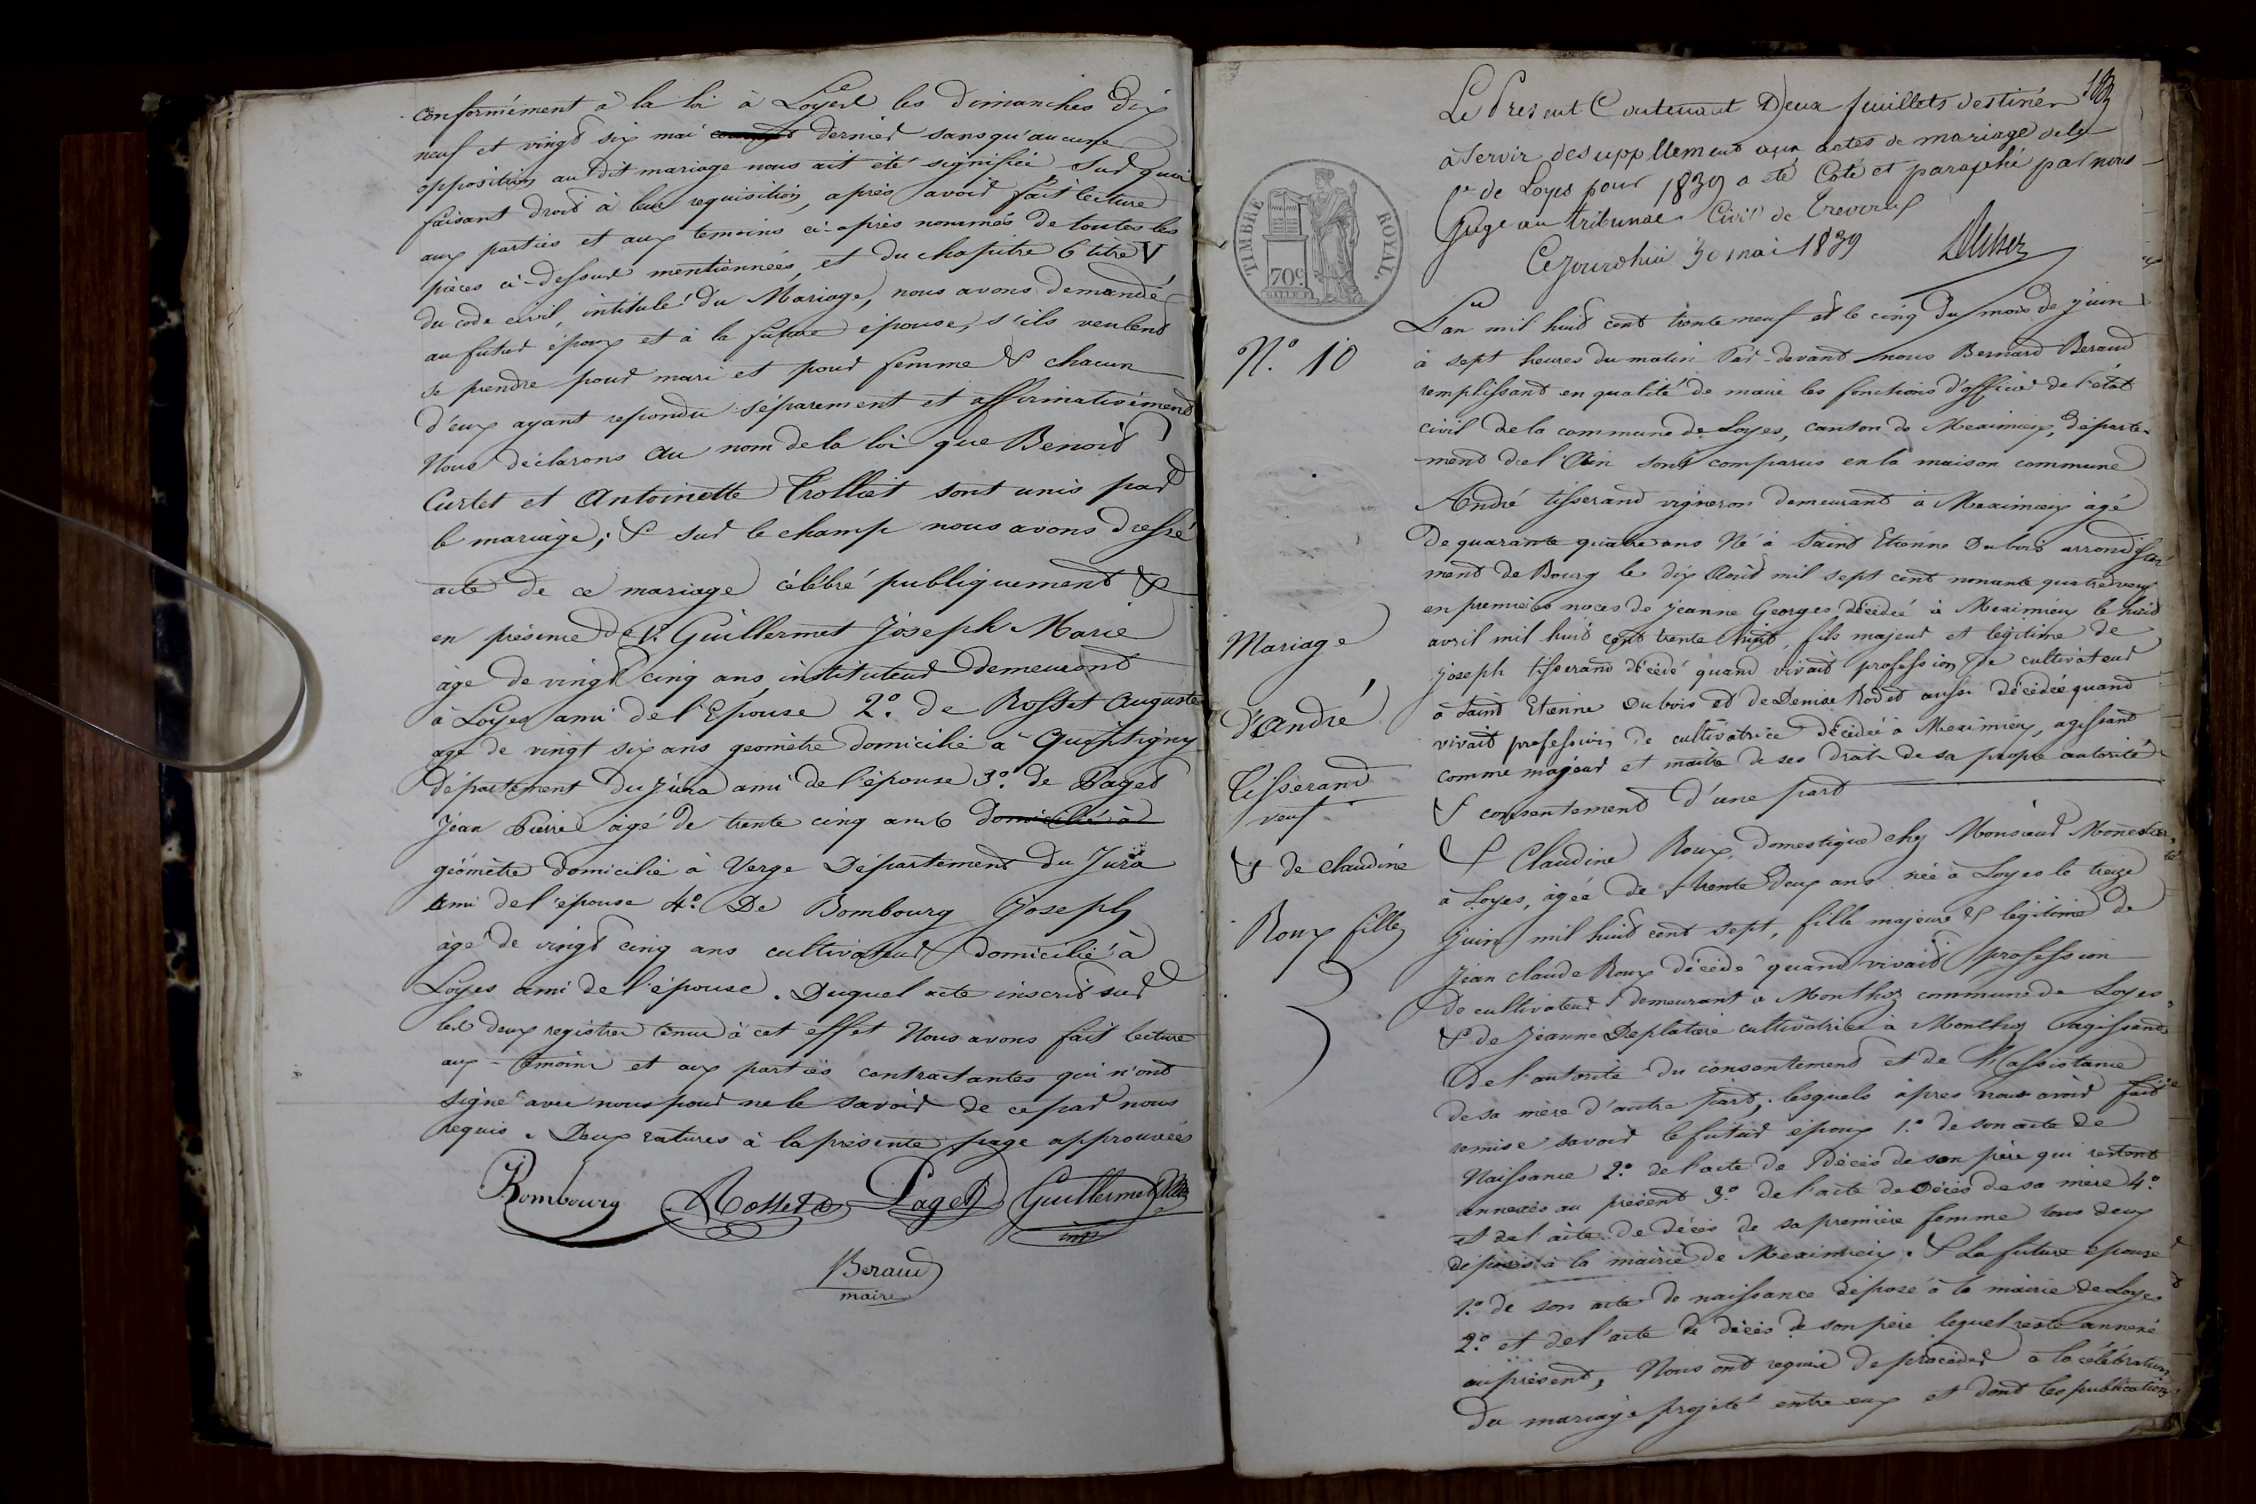 conformément à la loi à Loyes les dimanches dix
neuf et vingt six mai dernier sans qu'aucune
opposition au dit mariage nous ait été signifiée Sur quoi
faisant droit à leur requisition, après avoir fait lecture
aux parties et aux temoins ci-après nommés de toutes les
pièces ci-dessus mentionnées, et du chapitre 6 titre V
du code civil, intitulé Du Mariage, nous avons demandé
au futur époux et à la future épouse, s'ils veulent
se prendre pour mari et pour femme & chacun
d'eux ayant repondu séparement et affirmativement
Nous déclarons au nom de la loi que Benoit
Curtet et Antoinette Trolliet sont unis par
le mariage; & sur le champ nous avons dressé
acte de ce mariage célébré publiquement &
en présence de 1º Guillermet Joseph Marie
âgé de vingt cinq ans instituteur demeurant
à Loyes ami de l'Epouse 2º. de Rosset Auguste
agé de vingt six ans geomètre domicilié à Quintigny
Département du Jura ami de l'épouse 3º. de Paget
Jéan Pierre âgé de trente cinq ans domicilié à
géomètre domicilié à Verge Département du Jura
ami de l'épouse 4º. De Bombourg Joseph
âgé de vingt cinq ans cultivateur domicilié à
Loyes ami de l'épouse. Duquel acte inscrit sur
les deux registres tenus à cet effet Nous avons fait lecture
aux témoins et aux parties contractantes qui n'ont
signé avec nous pour ne le savoir de ce par nous
requis. Deux ratures à la présente page approuvées
Bombourg Rosset Paget Guillermet
Beraud
maire
183
Le Present Contenant Deux feuillets destinés
à Servir de suppllement aux actes de mariage de la
Cne de Loyes pour 1839 a eté Coté et paraphé par nous
Juge au tribunal Civil de Trevoux
Cejourdhui 30 mai 1839
TIMBRE ROYAL
70c.
Nº. 10
Mariage
d'André
Tisserand
veuf
& de Claudine
Roux fille
L'an mil huit cent trente neuf et le cinq du mois de juin
à sept heures du matin Par-devant nous Bernard Beraud
remplissant en qualité de maire les fonctions d'officier de l'état
civil de la commune de Loyes, canton de Meximieux, départe-
ment de l'Ain sont comparus en la maison commune
André tisserand vigneron demeurant à Meximieux âgé
De quarante quatre ans Né à Saint Etienne Dubois arrondisse
ment de Bourg le dix Août mil sept cent nonante quatre veuf
en premières noces de jeanne Georges, décédée à Meximieux le huit
avril mil huit cent trente huit, fils majeur et légitime de
joseph tisserand décédé quand vivait profession de cultivateur
à Saint Etienne Dubois et de Denise Rodet aussi décédée quand
vivait profession de cultivatrice décédée à Meximieux, agissant
comme majeur et maitre de ses droits de sa propre autorité
& consentement d'une part
& Claudine Roux, domestique chez Monsieur Monestier
à Loyes, âgée de trente deux ans née à Loyes le treize
juin mil huit cent sept, fille majeure & légitime de
Jean claude Roux décédé quand vivait profession
de cultivateur demeurant à Monthoz commune de Loyes
& de Jeanne Deplatère cultivatrice à Monthoz agissant
de l'autorité du consentement et de l'assistance
de sa mère d'autre part; lesquels après nous avoir fait
remise savoir le futur époux 1º de son acte de
Naissance 2º de l'acte de Décès de son père qui restont
annexés au présent 3º de l'acte de décès de sa mère 4º.
et de l'acte de décès de sa première femme tous deux
déposés à la mairie de Meximieux. & La future épouse
1º. de son acte de naissance déposé à la mairie de Loyes
2º et de l'acte de décès de son père lequel reste annexé
au présent, Nous ont requis de procéder à la célébration
du mariage projeté entre eux et dont les publications